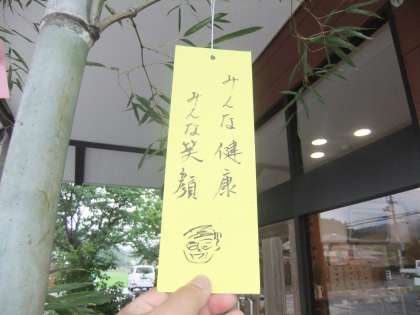 みんな健康
みんな笑顔